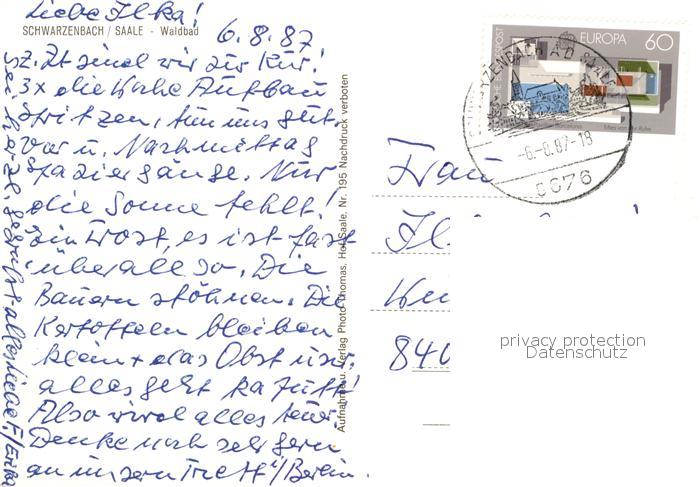 Liebe Ilka!
SCHWARZENBACH / SAALE - Waldbad
6.8.87
z. Zt sind wir zur Kur!
3x die Woche Aufbau
Spritzen, tun uns gut.
Vor u. Nachmittag
Spaziergänge. Nur
die Sonne fehlt!
Ein Trost, es ist fast
überall so. Die
Bauern stöhnen. Die
Kartoffeln bleiben
klein + das Obst
alles geht kaputt!
Also wird alles teur.
Denke noch sehr gern
an unsern Treff i/Berlin.
Sei herzl. gegrüßt alles Liebe F./Erika
Aufnahme u. Verlag Photo-Thomas, Hof/Saale, Nr. 195 Nachdruck verboten
EUROPA
60
-6.-8.87-18
8676
Frau
840
privacy protection
Datenschutz